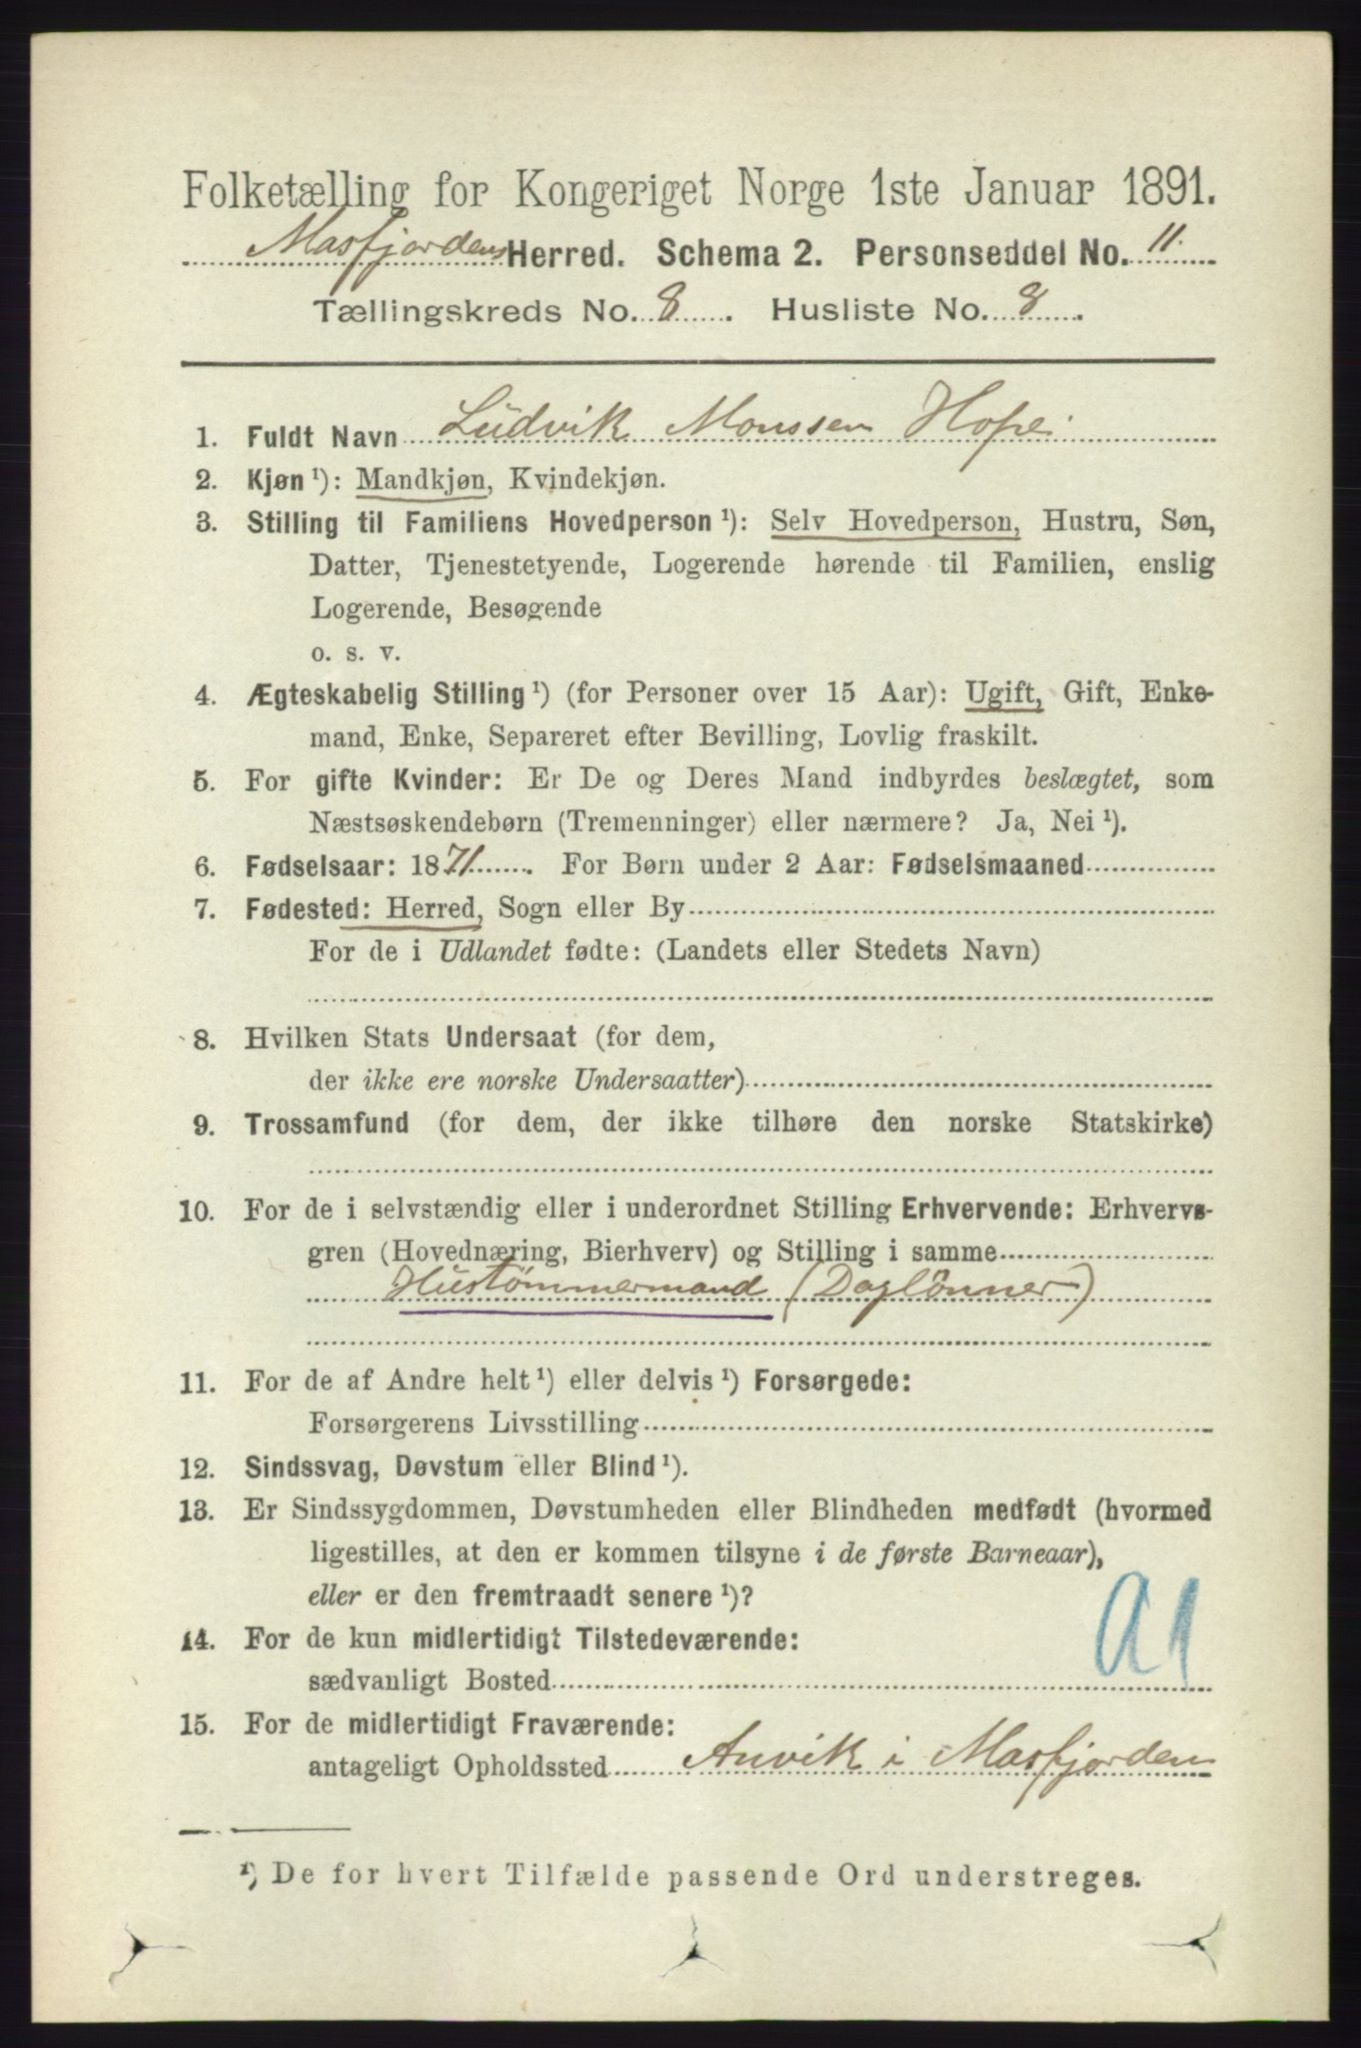 Folketælling for Kongeriget Norge 1ste Januar 1891.
Masfjordens Herred. Schema 2. Personseddel No. 11.
Tællingskreds No. 8. Husliste No. 8.
1. Fuldt Navn Ludvik Monssen Hope
2. Kjøn ¹): Mandkjøn, Kvindekjøn.
3. Stilling til Familiens Hovedperson ¹): Selv Hovedperson, Hustru, Søn,
Datter, Tjenestetyende, Logerende hørende til Familien, enslig
Logerende, Besøgende
o. s. v.
4. Ægteskabelig Stilling ¹) (for Personer over 15 Aar): Ugift, Gift, Enke-
mand, Enke, Separeret efter Bevilling, Lovlig fraskilt.
5. For gifte Kvinder: Er De og Deres Mand indbyrdes beslægtet, som
Næstsøskendebørn (Tremenninger) eller nærmere? Ja, Nei ¹).
6. Fødselsaar: 1871. For Børn under 2 Aar: Fødselsmaaned
7. Fødested: Herred, Sogn eller By
For de i Udlandet fødte: (Landets eller Stedets Navn)
8. Hvilken Stats Undersaat (for dem,
der ikke ere norske Undersaatter)
9. Trossamfund (for dem, der ikke tilhøre den norske Statskirke)
10. For de i selvstændig eller i underordnet Stilling Erhvervende: Erhvervs-
gren (Hovednæring, Bierhverv) og Stilling i samme
Hustømmermand (Daglönner)
11. For de af Andre helt ¹) eller delvis ¹) Forsørgede:
Forsørgerens Livsstilling
12. Sindssvag, Døvstum eller Blind ¹).
13. Er Sindssygdommen, Døvstumheden eller Blindheden medfødt (hvormed
ligestilles, at den er kommen tilsyne i de første Barneaar),
eller er den fremtraadt senere ¹)?
14. For de kun midlertidigt Tilstedeværende:
sædvanligt Bosted
A1
15. For de midlertidigt Fraværende:
antageligt Opholdssted Anvik i Masfjorden
¹) De for hvert Tilfælde passende Ord understreges.